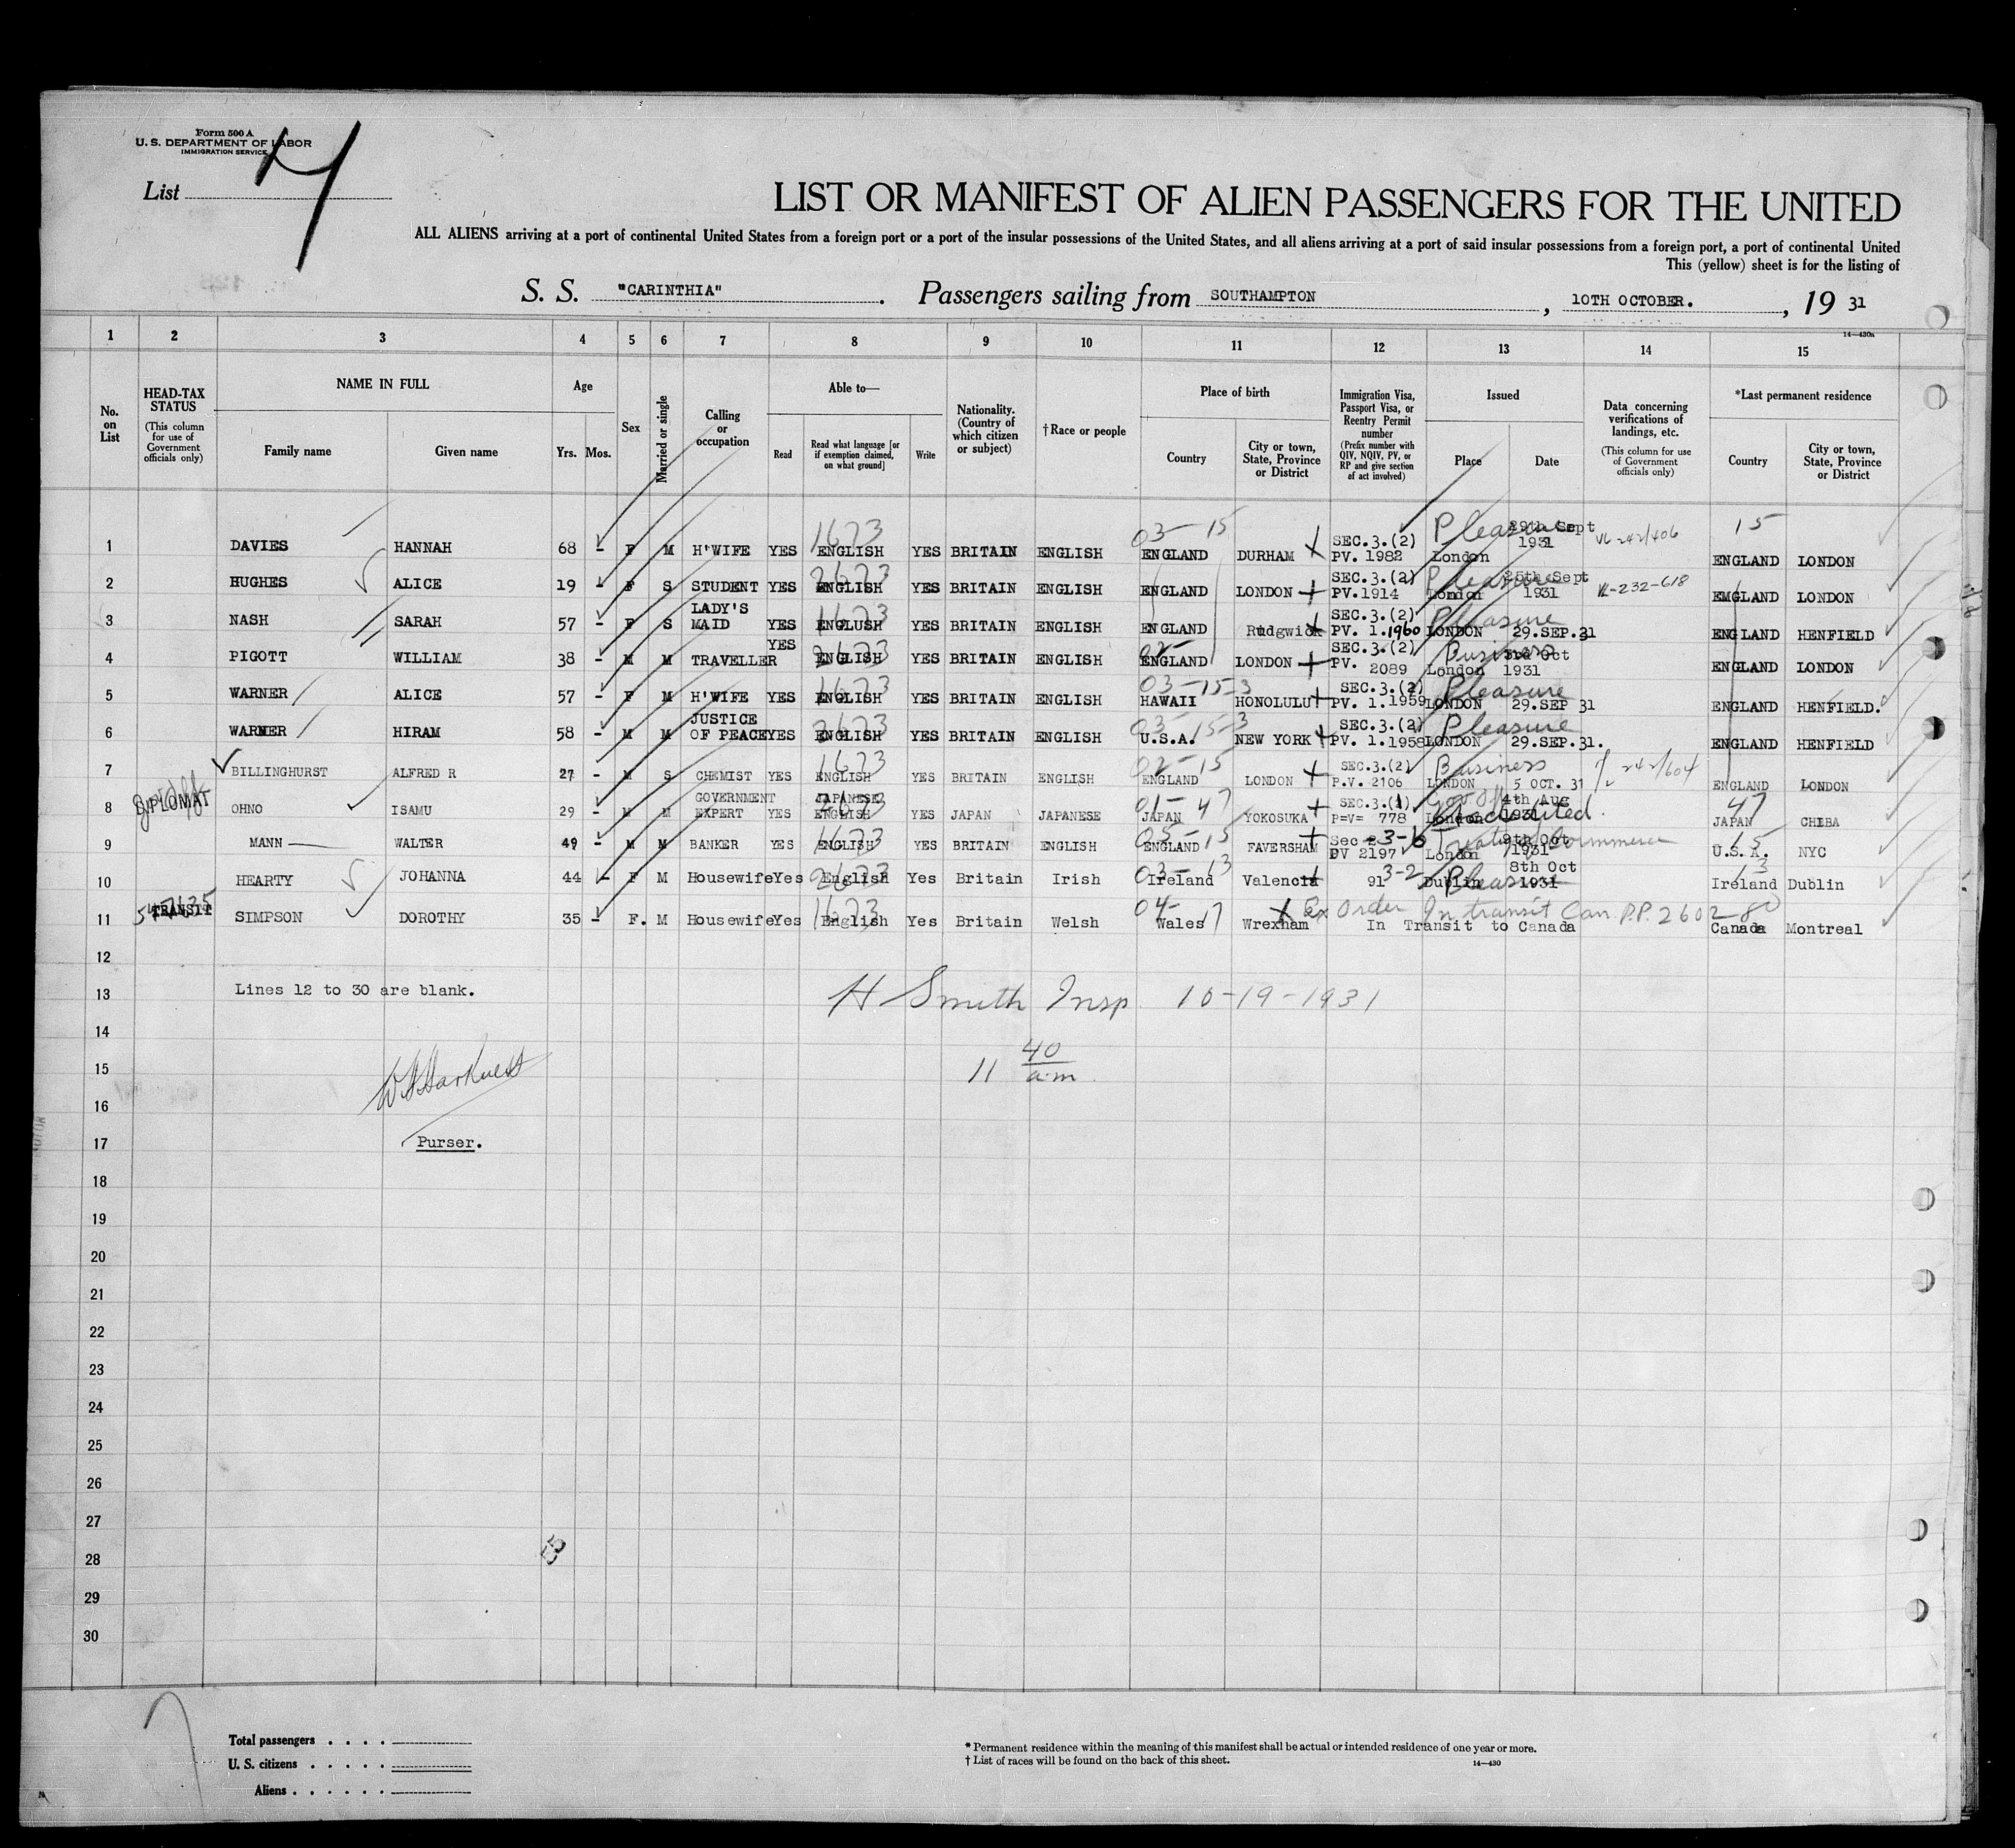 Form 500 A
U. S. DEPARTMENT OF LABOR
IMMIGRATION SERVICE
List
LIST OR MANIFEST OF ALIEN PASSENGERS FOR THE UNITED
ALL ALIENS arriving at a port of continental United States from a foreign port or a port of the insular possessions of the United States, and all aliens arriving at a port of said insular possessions from a foreign port, a port of continental United
This (yellow) sheet is for the listing of
S. S. "CARINTHIA". Passengers sailing from SOUTHAMPTON, 10TH OCTOBER., 19 31
14—430a
1 2 3 4 5 6 7 8 9 10 11 12 13 14 15
No. on List
HEAD-TAX STATUS
(This column for use of Government officials only)
NAME IN FULL
Family name Given name
Age
Yrs. Mos.
Sex
Married or single
Calling or occupation
Able to—
Read
Read what language [or if exemption claimed, on what ground]
Write
Nationality. (Country of which citizen or subject)
†Race or people
Place of birth
Country
City or town, State, Province or District
Immigration Visa, Passport Visa, or Reentry Permit number
(Prefix number with QIV, NQIV, PV, or RP and give section of act involved)
Issued
Place Date
Data concerning verifications of landings, etc.
(This column for use of Government officials only)
*Last permanent residence
Country
City or town, State, Province or District
1 DAVIES HANNAH 68 - F M H'WIFE YES ENGLISH 1673 YES BRITAIN ENGLISH 03-15 ENGLAND DURHAM SEC.3.(2) PV. 1982 Pleasure London 29th Sept 1931 15 ENGLAND LONDON
2 HUGHES ALICE 19 - F S STUDENT YES ENGLISH 2673 YES BRITAIN ENGLISH ENGLAND LONDON SEC.3.(2) PV.1914 Pleasure London 25th Sept 1931 ENGLAND LONDON
3 NASH SARAH 57 - F S LADY'S MAID YES ENGLUSH 1673 YES BRITAIN ENGLISH ENGLAND Rudgwick SEC.3.(2) PV. 1.1960 Pleasure LONDON 29.SEP.31 ENGLAND HENFIELD
4 PIGOTT WILLIAM 38 - M M TRAVELLER YES ENGLISH 2673 YES BRITAIN ENGLISH 02- ENGLAND LONDON SEC.3.(2) PV. 2089 Business London 3rd Oct 1931 ENGLAND LONDON
5 WARNER ALICE 57 - F M H'WIFE YES ENGLISH 1673 YES BRITAIN ENGLISH 03-15-3 HAWAII HONOLULU SEC.3.(2) PV. 1.1959 Pleasure LONDON 29.SEP 31 ENGLAND HENFIELD.
6 WARNER HIRAM 58 - M M JUSTICE OF PEACE YES ENGLISH 2673 YES BRITAIN ENGLISH 03-15-3 U.S.A. NEW YORK SEC.3.(2) PV. 1.1958 Pleasure LONDON 29.SEP.31. ENGLAND HENFIELD
7 BILLINGHURST ALFRED R 27 - M S CHEMIST YES ENGLISH 1673 YES BRITAIN ENGLISH 02-15 ENGLAND LONDON SEC.3.(2) P.V. 2106 Business LONDON 5 OCT. 31 ENGLAND LONDON
8 DIPLOMAT OHNO ISAMU 29 - M M GOVERNMENT EXPERT YES JAPANESE ENGLISH 2673 YES JAPAN JAPANESE 01-47 JAPAN YOKOSUKA SEC.3.(1) P=V= 778 London 4th Aug 1931 47 JAPAN CHIBA
9 MANN WALTER 49 - M M BANKER YES ENGLISH 1673 YES BRITAIN ENGLISH 05-15 ENGLAND FAVERSHAM Sec 3-6 PV 2197 London 9th Oct 1931 15 U.S.A. NYC
10 HEARTY JOHANNA 44 - F M Housewife Yes English 2673 Yes Britain Irish 03-13 Ireland Valencia 91 3-2 Dublin Pleasure 8th Oct 1931 13 Ireland Dublin
11 TRANSIT SIMPSON DOROTHY 35 - F. M Housewife Yes English 1673 Yes Britain Welsh 04-17 Wales Wrexham Ex Order In transit Can. P.P. 2602-80 In Transit to Canada Canada Montreal
12
13 Lines 12 to 30 are blank. H Smith Insp 10-19-1931
14
15 11 40 a.m.
16 W Harkness
17 Purser.
18
19
20
21
22
23
24
25
26
27
28
29
30
Total passengers . . . .
U. S. citizens . . . . .
Aliens . . . . . .
* Permanent residence within the meaning of this manifest shall be actual or intended residence of one year or more.
† List of races will be found on the back of this sheet.
14—430